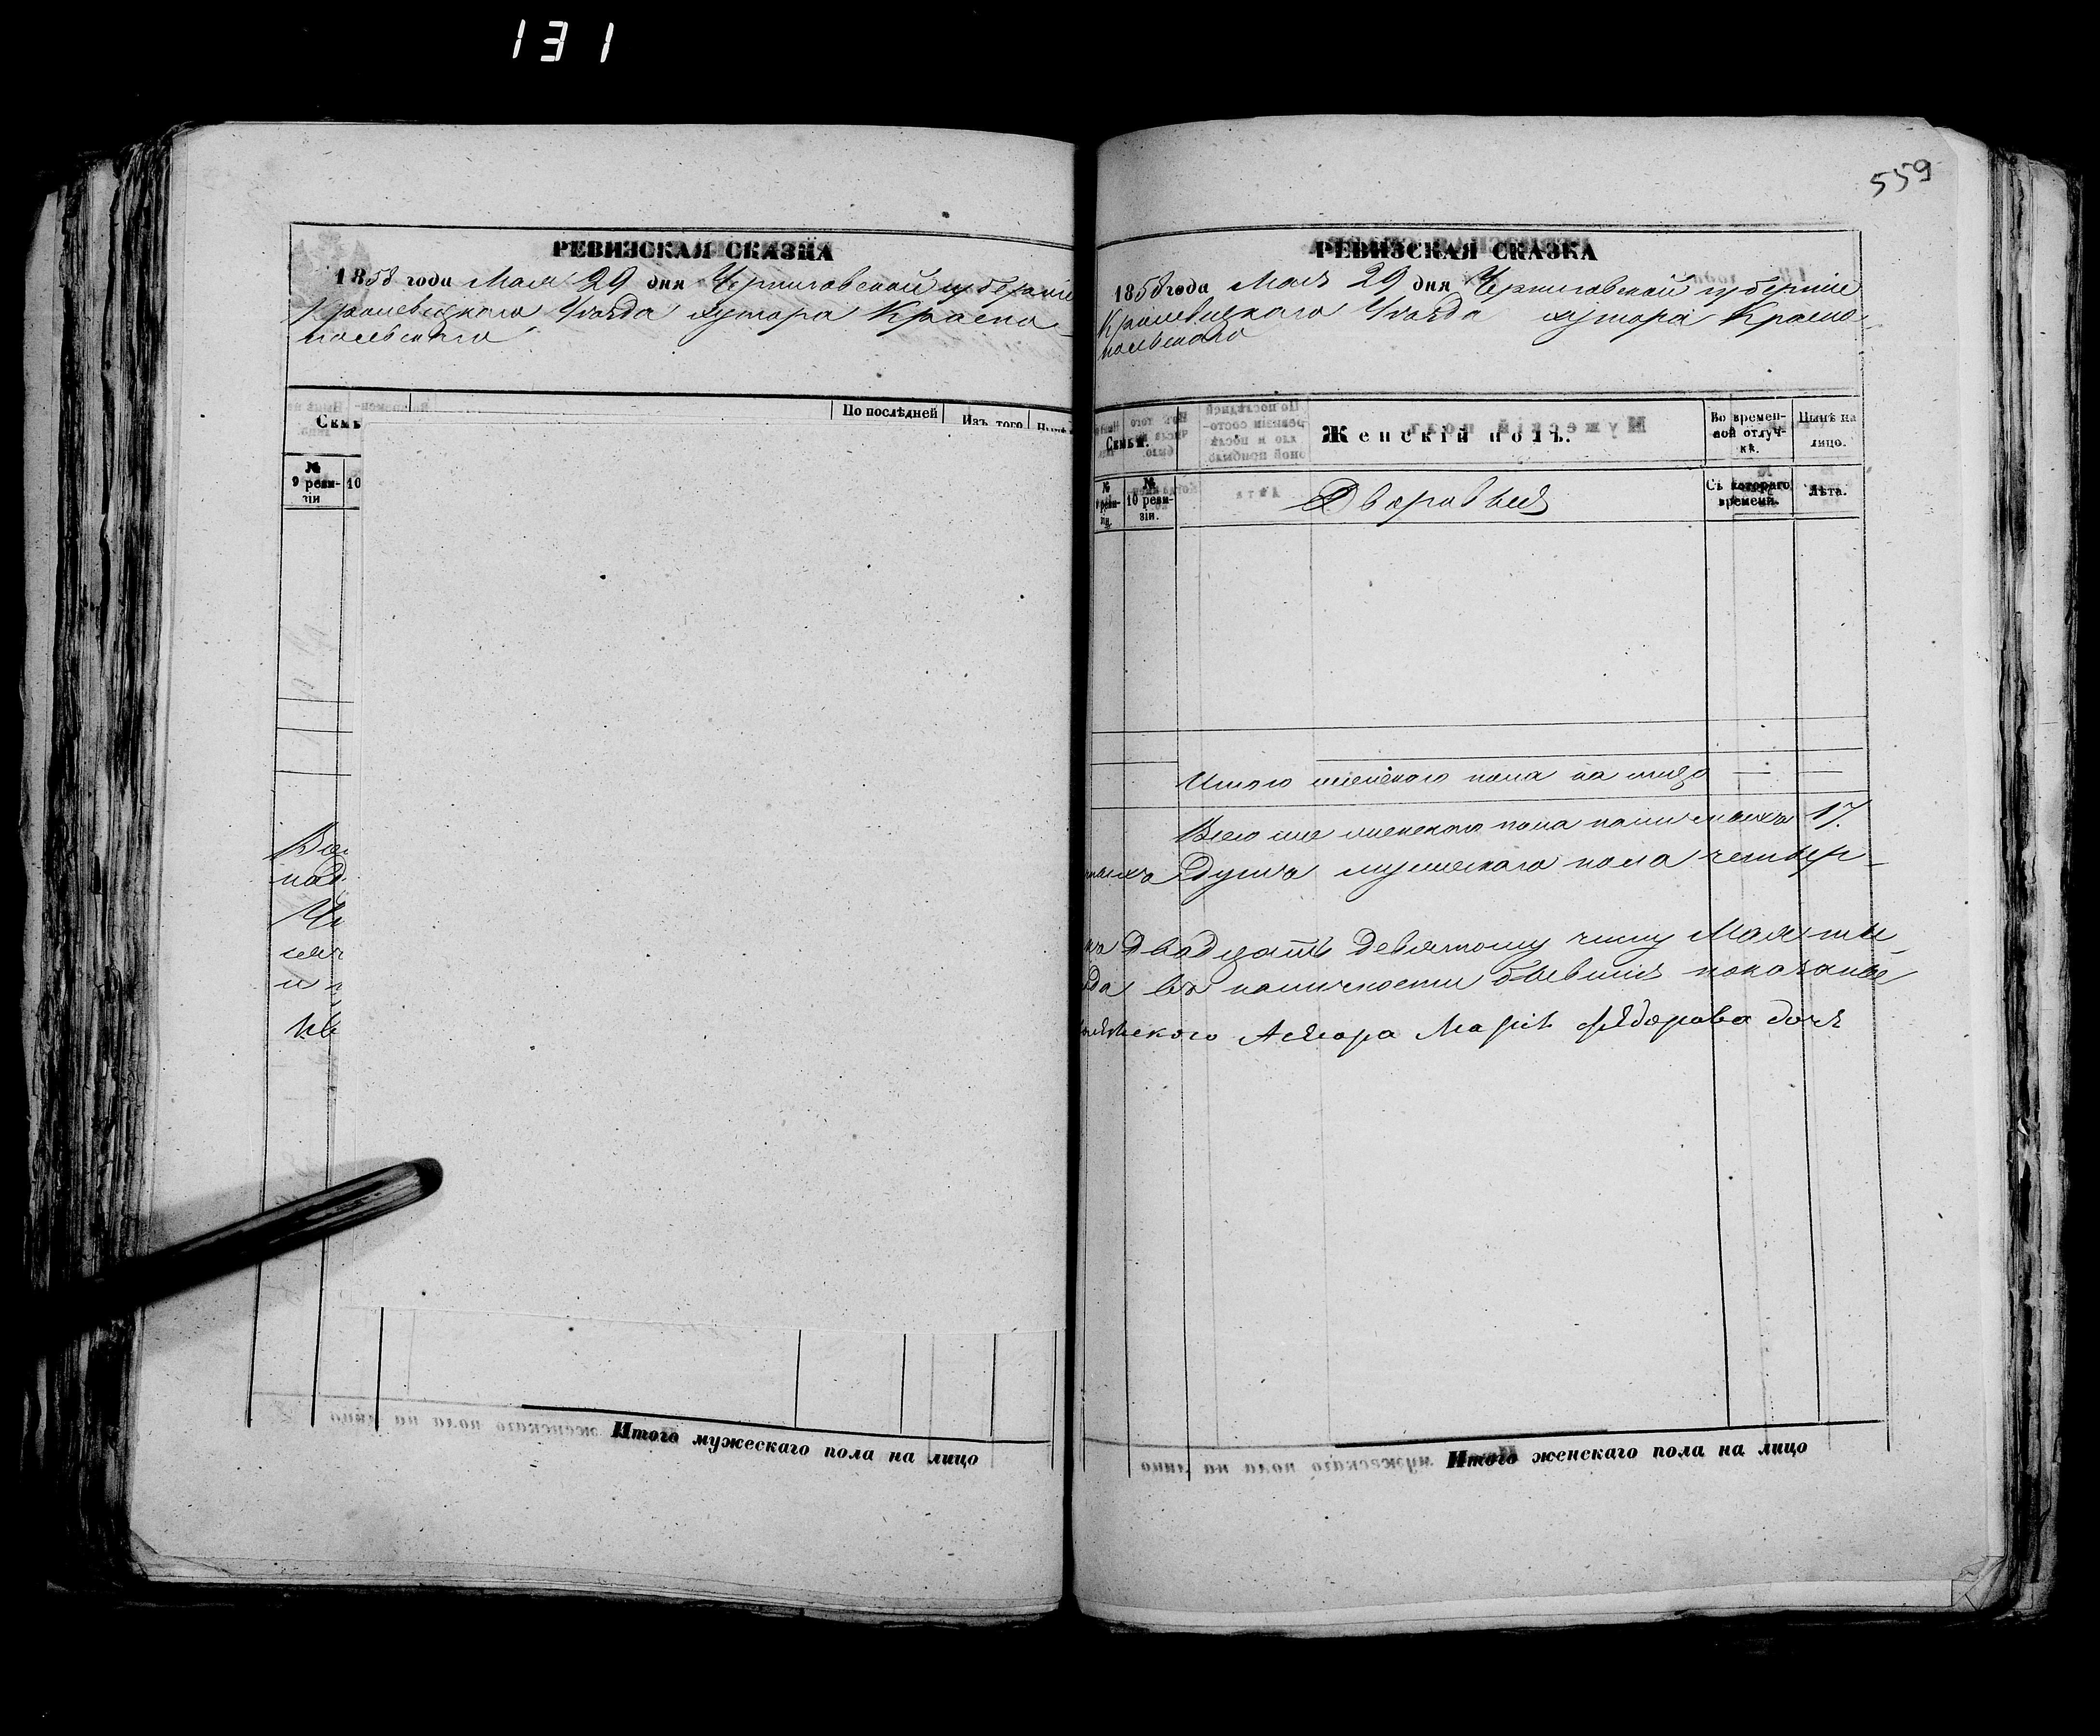 131
559
РЕВИЗСКАЯ СКАЗКА
1858 года Мая 29 дня Черниговской губерніи
Кролевецкаго Уѣзда хутора Краспо-
польскаго
По послѣдней
Изъ того
Семь
№
9 реви-
зіи
10
Все
над
Чи
сяч
и
Итого мужескаго пола на лицо
РЕВИЗСКАЯ СКАЗКА
1858 года Мая 29 дня Черниговской губерніи
Кролевецкаго Уѣзда хутора Краспо-
польскаго
Семьи.
Женскій полъ.
Во времен-
ной отлуч-
кѣ.
Нынѣ на
лицо.
№
№
10 реви-
зіи.
Дворовыя
Съ котораго
времени.
Лѣта.
Итого женского пола на лицо — —
Всего же женского пола наличныхъ 17.
Душъ мужеского пола четыр-
двадцать девятому числу Мая ты-
въ наличности бывшія показаны
Маріѣ Ѳедорова дочь
Итого женскаго пола на лицо